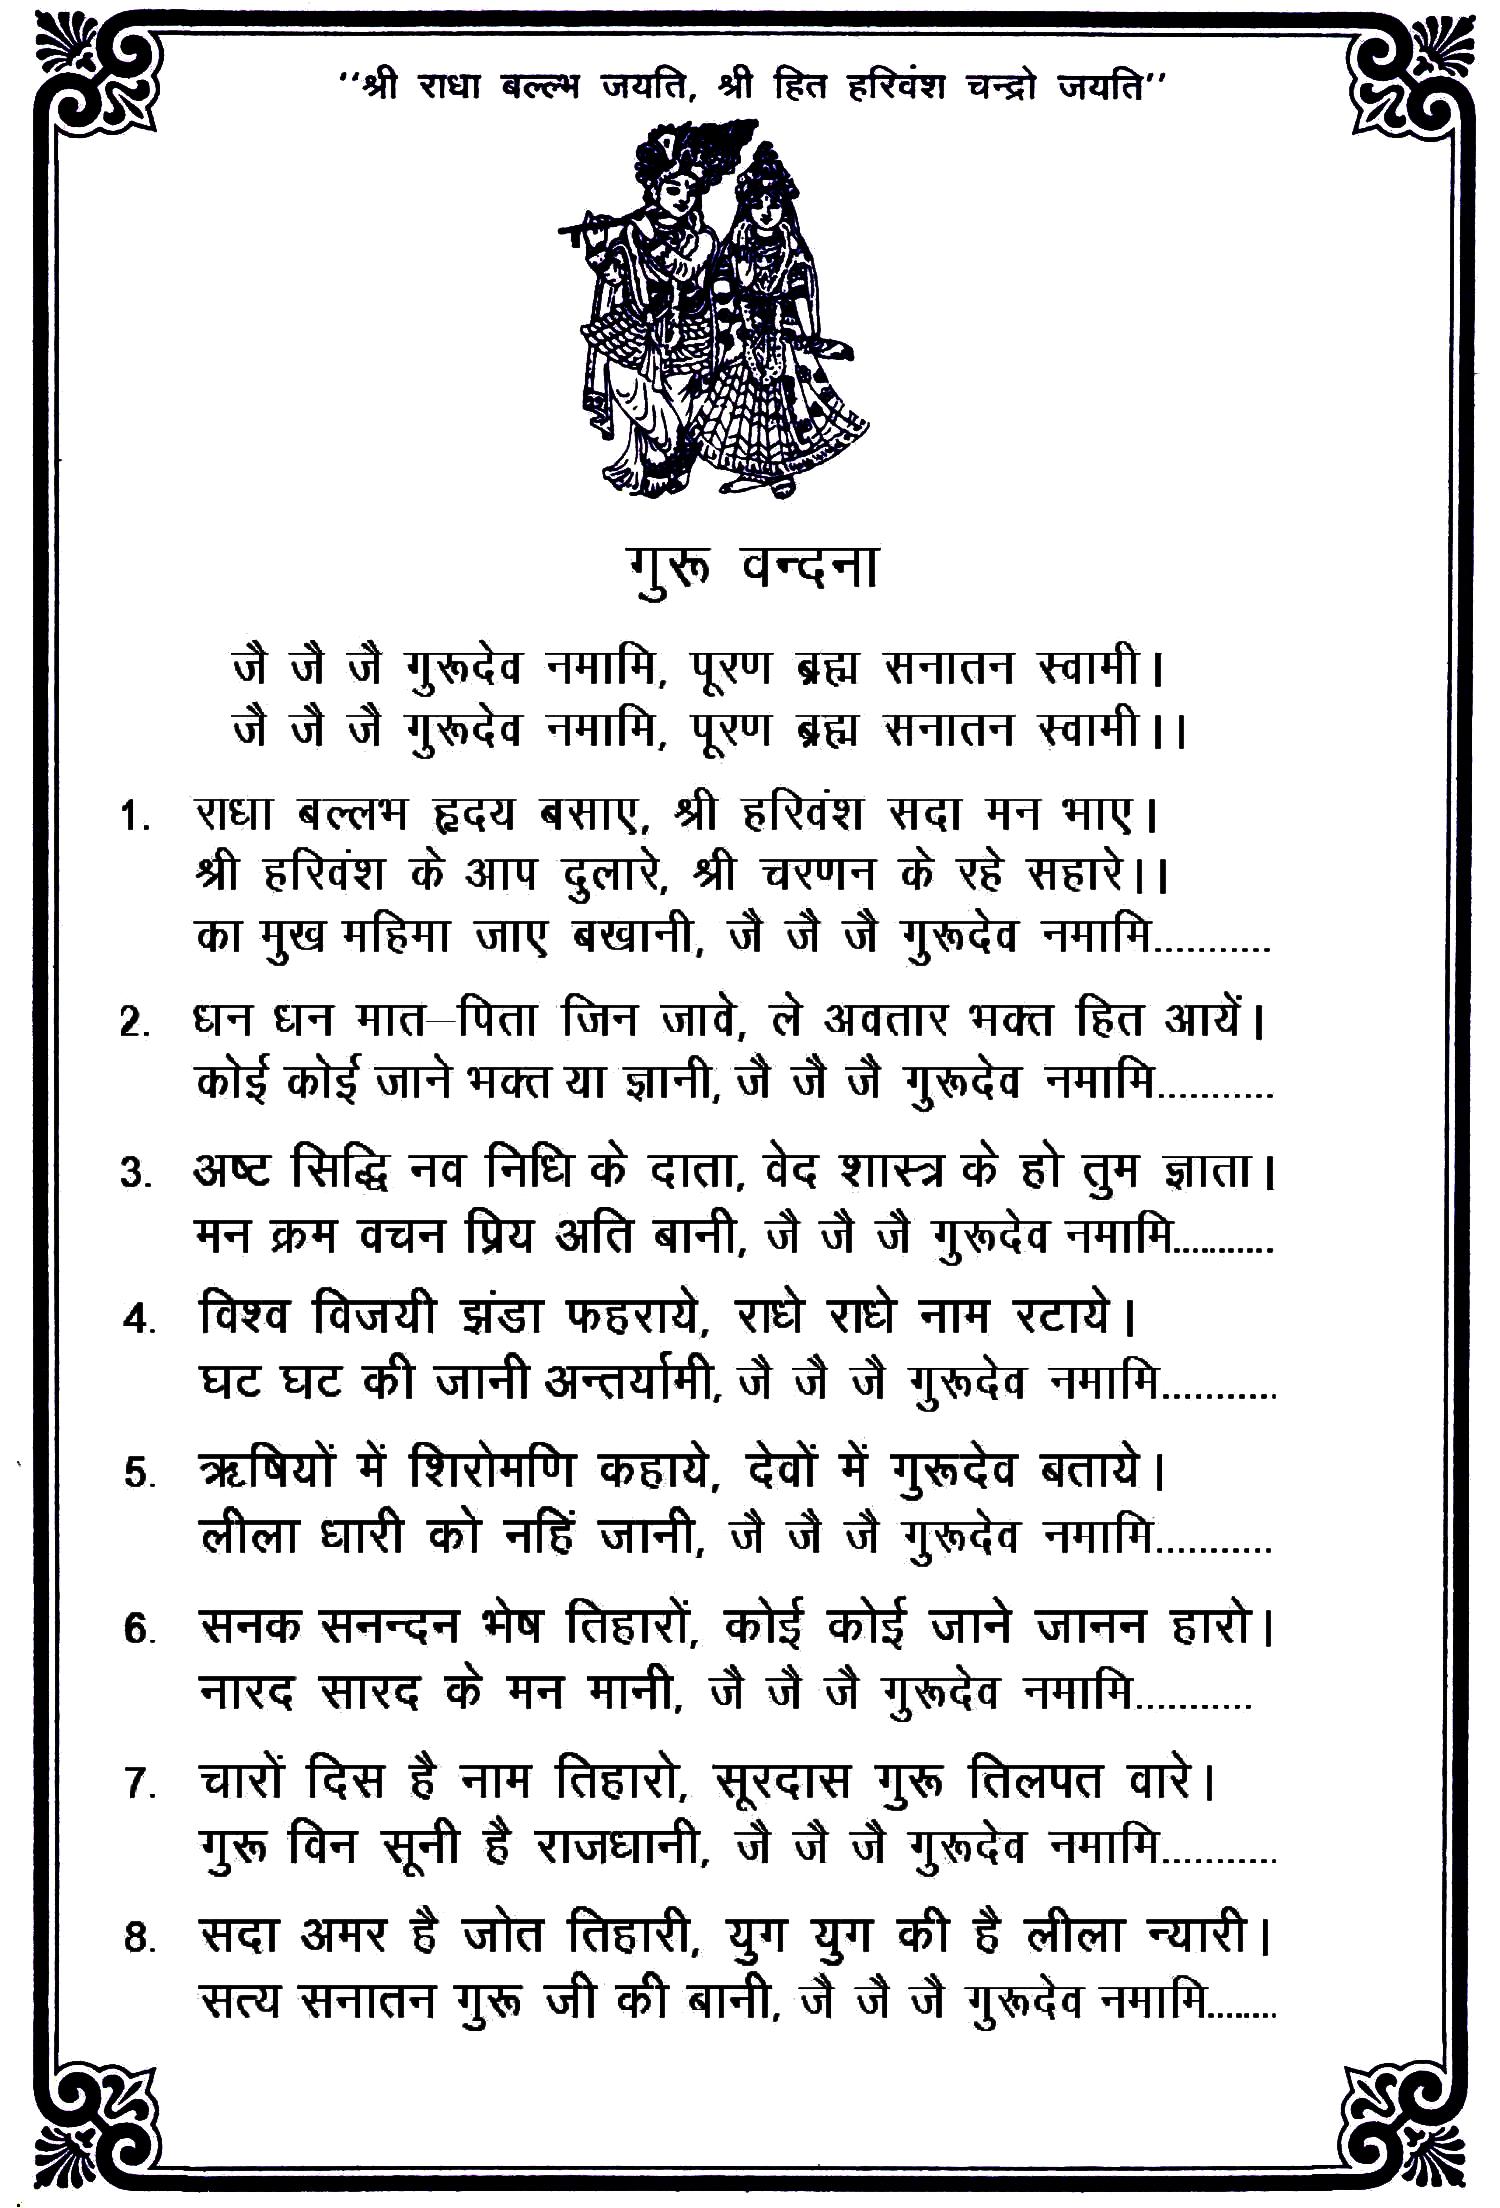 "श्री राधा बल्ल्भ जयति, श्री हित हरिवंश चन्द्रो जयति"
गुरू वन्दना
जै जै जै गुरूदेव नमामि, पूरण ब्रह्म सनातन स्वामी।
जै जै जै गुरूदेव नमामि, पूरण ब्रह्म सनातन स्वामी।।
1. राधा बल्लभ हृदय बसाए, श्री हरिवंश सदा मन भाए।
श्री हरिवंश के आप दुलारे, श्री चरणन के रहे सहारे।।
का मुख महिमा जाए बखानी, जै जै जै गुरूदेव नमामि...........
2. धन धन मात–पिता जिन जावे, ले अवतार भक्त हित आयें।
कोई कोई जाने भक्त या ज्ञानी, जै जै जै गुरूदेव नमामि...........
3. अष्ट सिद्धि नव निधि के दाता, वेद शास्त्र के हो तुम ज्ञाता।
मन क्रम वचन प्रिय अति बानी, जै जै जै गुरूदेव नमामि...........
4. विश्व विजयी झंडा फहराये, राधे राधे नाम रटाये।
घट घट की जानी अन्तर्यामी, जै जै जै गुरूदेव नमामि...........
5. ऋषियों में शिरोमणि कहाये, देवों में गुरूदेव बताये।
लीला धारी को नहिं जानी, जै जै जै गुरूदेव नमामि...........
6. सनक सनन्दन भेष तिहारों, कोई कोई जाने जानन हारो।
नारद सारद के मन मानी, जै जै जै गुरूदेव नमामि...........
7. चारों दिस है नाम तिहारो, सूरदास गुरू तिलपत वारे।
गुरू विन सूनी है राजधानी, जै जै जै गुरूदेव नमामि...........
8. सदा अमर है जोत तिहारी, युग युग की है लीला न्यारी।
सत्य सनातन गुरू जी की बानी, जै जै जै गुरूदेव नमामि........